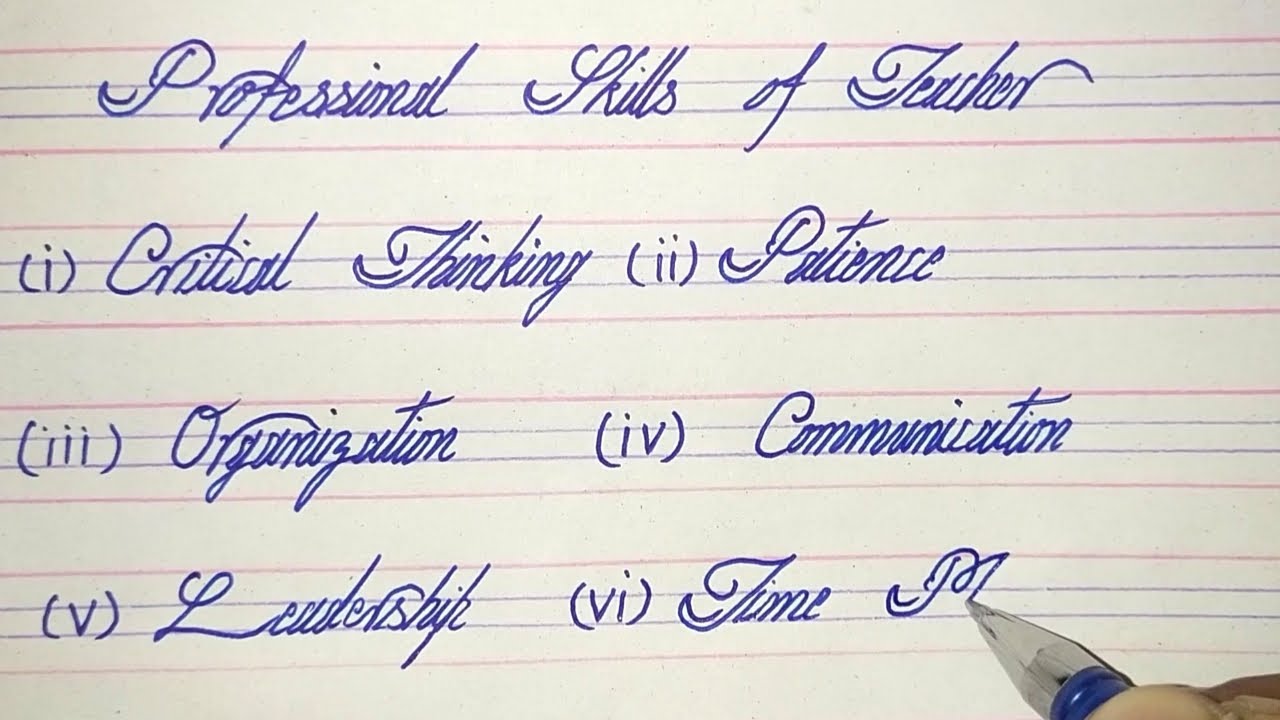 Professional Skills of Teacher
(i) Critical Thinking (ii) Patience
(iii) Organization (iv) Communication
(v) Leadership (vi) Time M